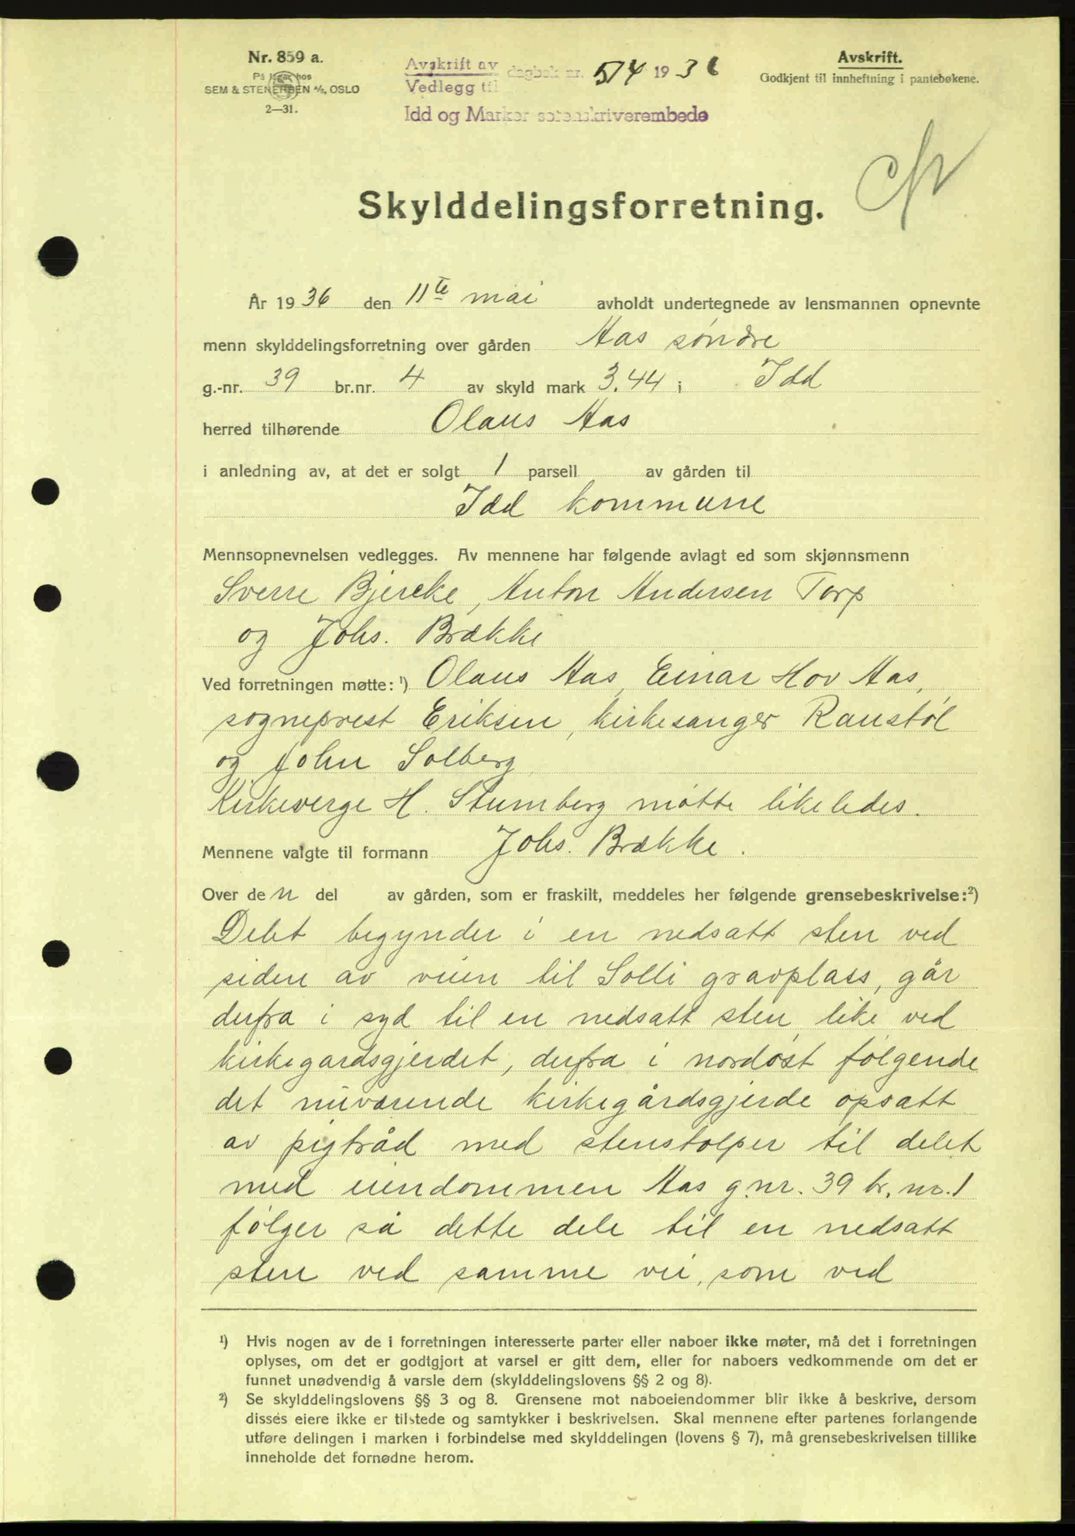 Nr. 859 a.
På lager hos
SEM & STENERSEN A/S, OSLO
2—31.
Avskrift av dagbok nr. 514 1936
Vedlegg til
Idd og Marker sorenskriverembede
Avskrift.
Godkjent til innheftning i pantebøkene.
Skylddelingsforretning.
År 1936 den 11te mai avholdt undertegnede av lensmannen opnevnte
menn skylddelingsforretning over gården Aas søndre
g.-nr. 39 br.nr. 4 av skyld mark 3.44 i Idd
herred tilhørende Olaus Aas
i anledning av, at det er solgt 1 parsell av gården til
Idd kommune
Mennsopnevnelsen vedlegges. Av mennene har følgende avlagt ed som skjønnsmenn
Sverre Bjercke, Anton Andersen Torp
og Johs. Brække
Ved forretningen møtte:¹) Olaus Aas, Einar Hov Aas,
sogneprest Eriksen, kirkesanger Raustøl
og John Solberg
Kirkeverge H. Stumberg møtte likeledes.
Mennene valgte til formann Johs. Brække.
Over den del av gården, som er fraskilt, meddeles her følgende grensebeskrivelse:²)
Delet begynder i en nedsatt sten ved
siden av veien til Solli gravplass, går
derfra i syd til en nedsatt sten like ved
kirkegardsgjerdet, derfra i nordøst følgende
det nuværende kirkegårdsgjerde opsatt
av pigtråd med stenstolper til delet
med eiendommen Aas g.nr. 39 br. nr. 1
følger så dette dele til en nedsatt
sten ved samme vei, som ved
¹) Hvis nogen av de i forretningen interesserte parter eller naboer ikke møter, må det i forretningen
oplyses, om det er godtgjort at varsel er gitt dem, eller for naboers vedkommende om det er
funnet unødvendig å varsle dem (skylddelingslovens §§ 2 og 8).
²) Se skylddelingslovens §§ 3 og 8. Grensene mot naboeiendommer blir ikke å beskrive, dersom
disses eiere ikke er tilstede og samtykker i beskrivelsen. Skal mennene efter partenes forlangende
utføre delingen i marken i forbindelse med skylddelingen (lovens § 7), må grensebeskrivelsen tillike
inneholde det fornødne herom.